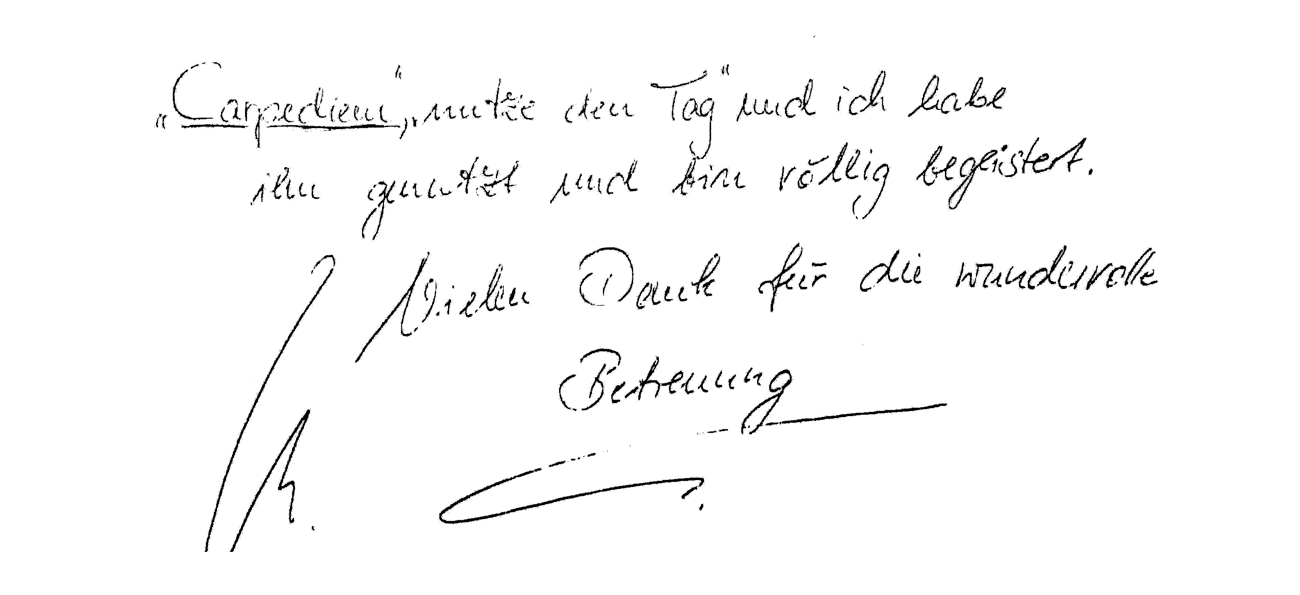 „Carpediem“, „nutze den Tag“ und ich habe
ihn genutzt und bin völlig begeistert.
Vielen Dank für die wundervolle
Betreuung